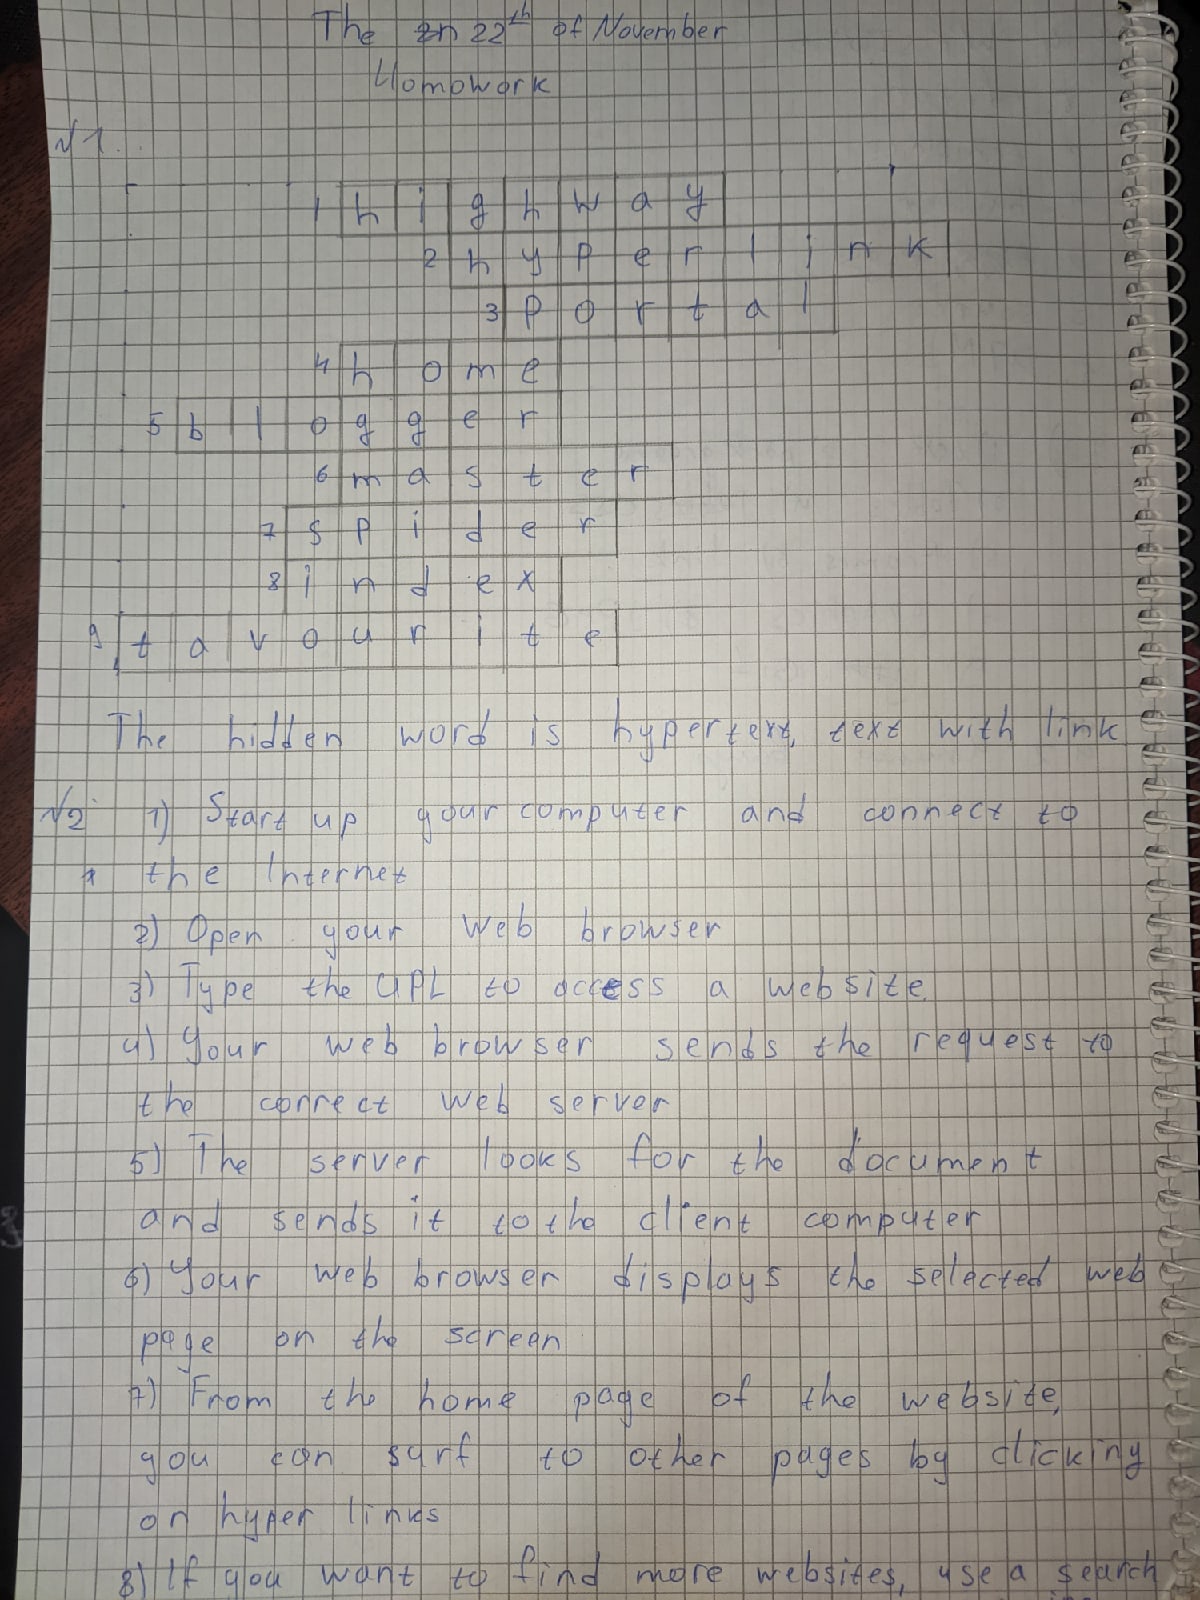 The 22th of November
Homework
№1.
1 h i g h w a y
2 h y p e r l i n k
3 p o r t a l
4 h o m e
5 b l o g g e r
6 m a s t e r
7 s p i d e r
8 i n d e x
9 f a v o u r i t e
The hidden word is hypertext, text with link
№2 1) Start up your computer and connect to
the Internet
2) Open your web browser
3) Type the URL to access a website
4) Your web browser sends the request to
the correct web server
5) The server looks for the document
and sends it to the client computer
6) Your web browser displays the selected web
page on the screen
7) From the home page of the website,
you can surf to other pages by clicking
on hyper links
8) If you want to find more websites, use a search